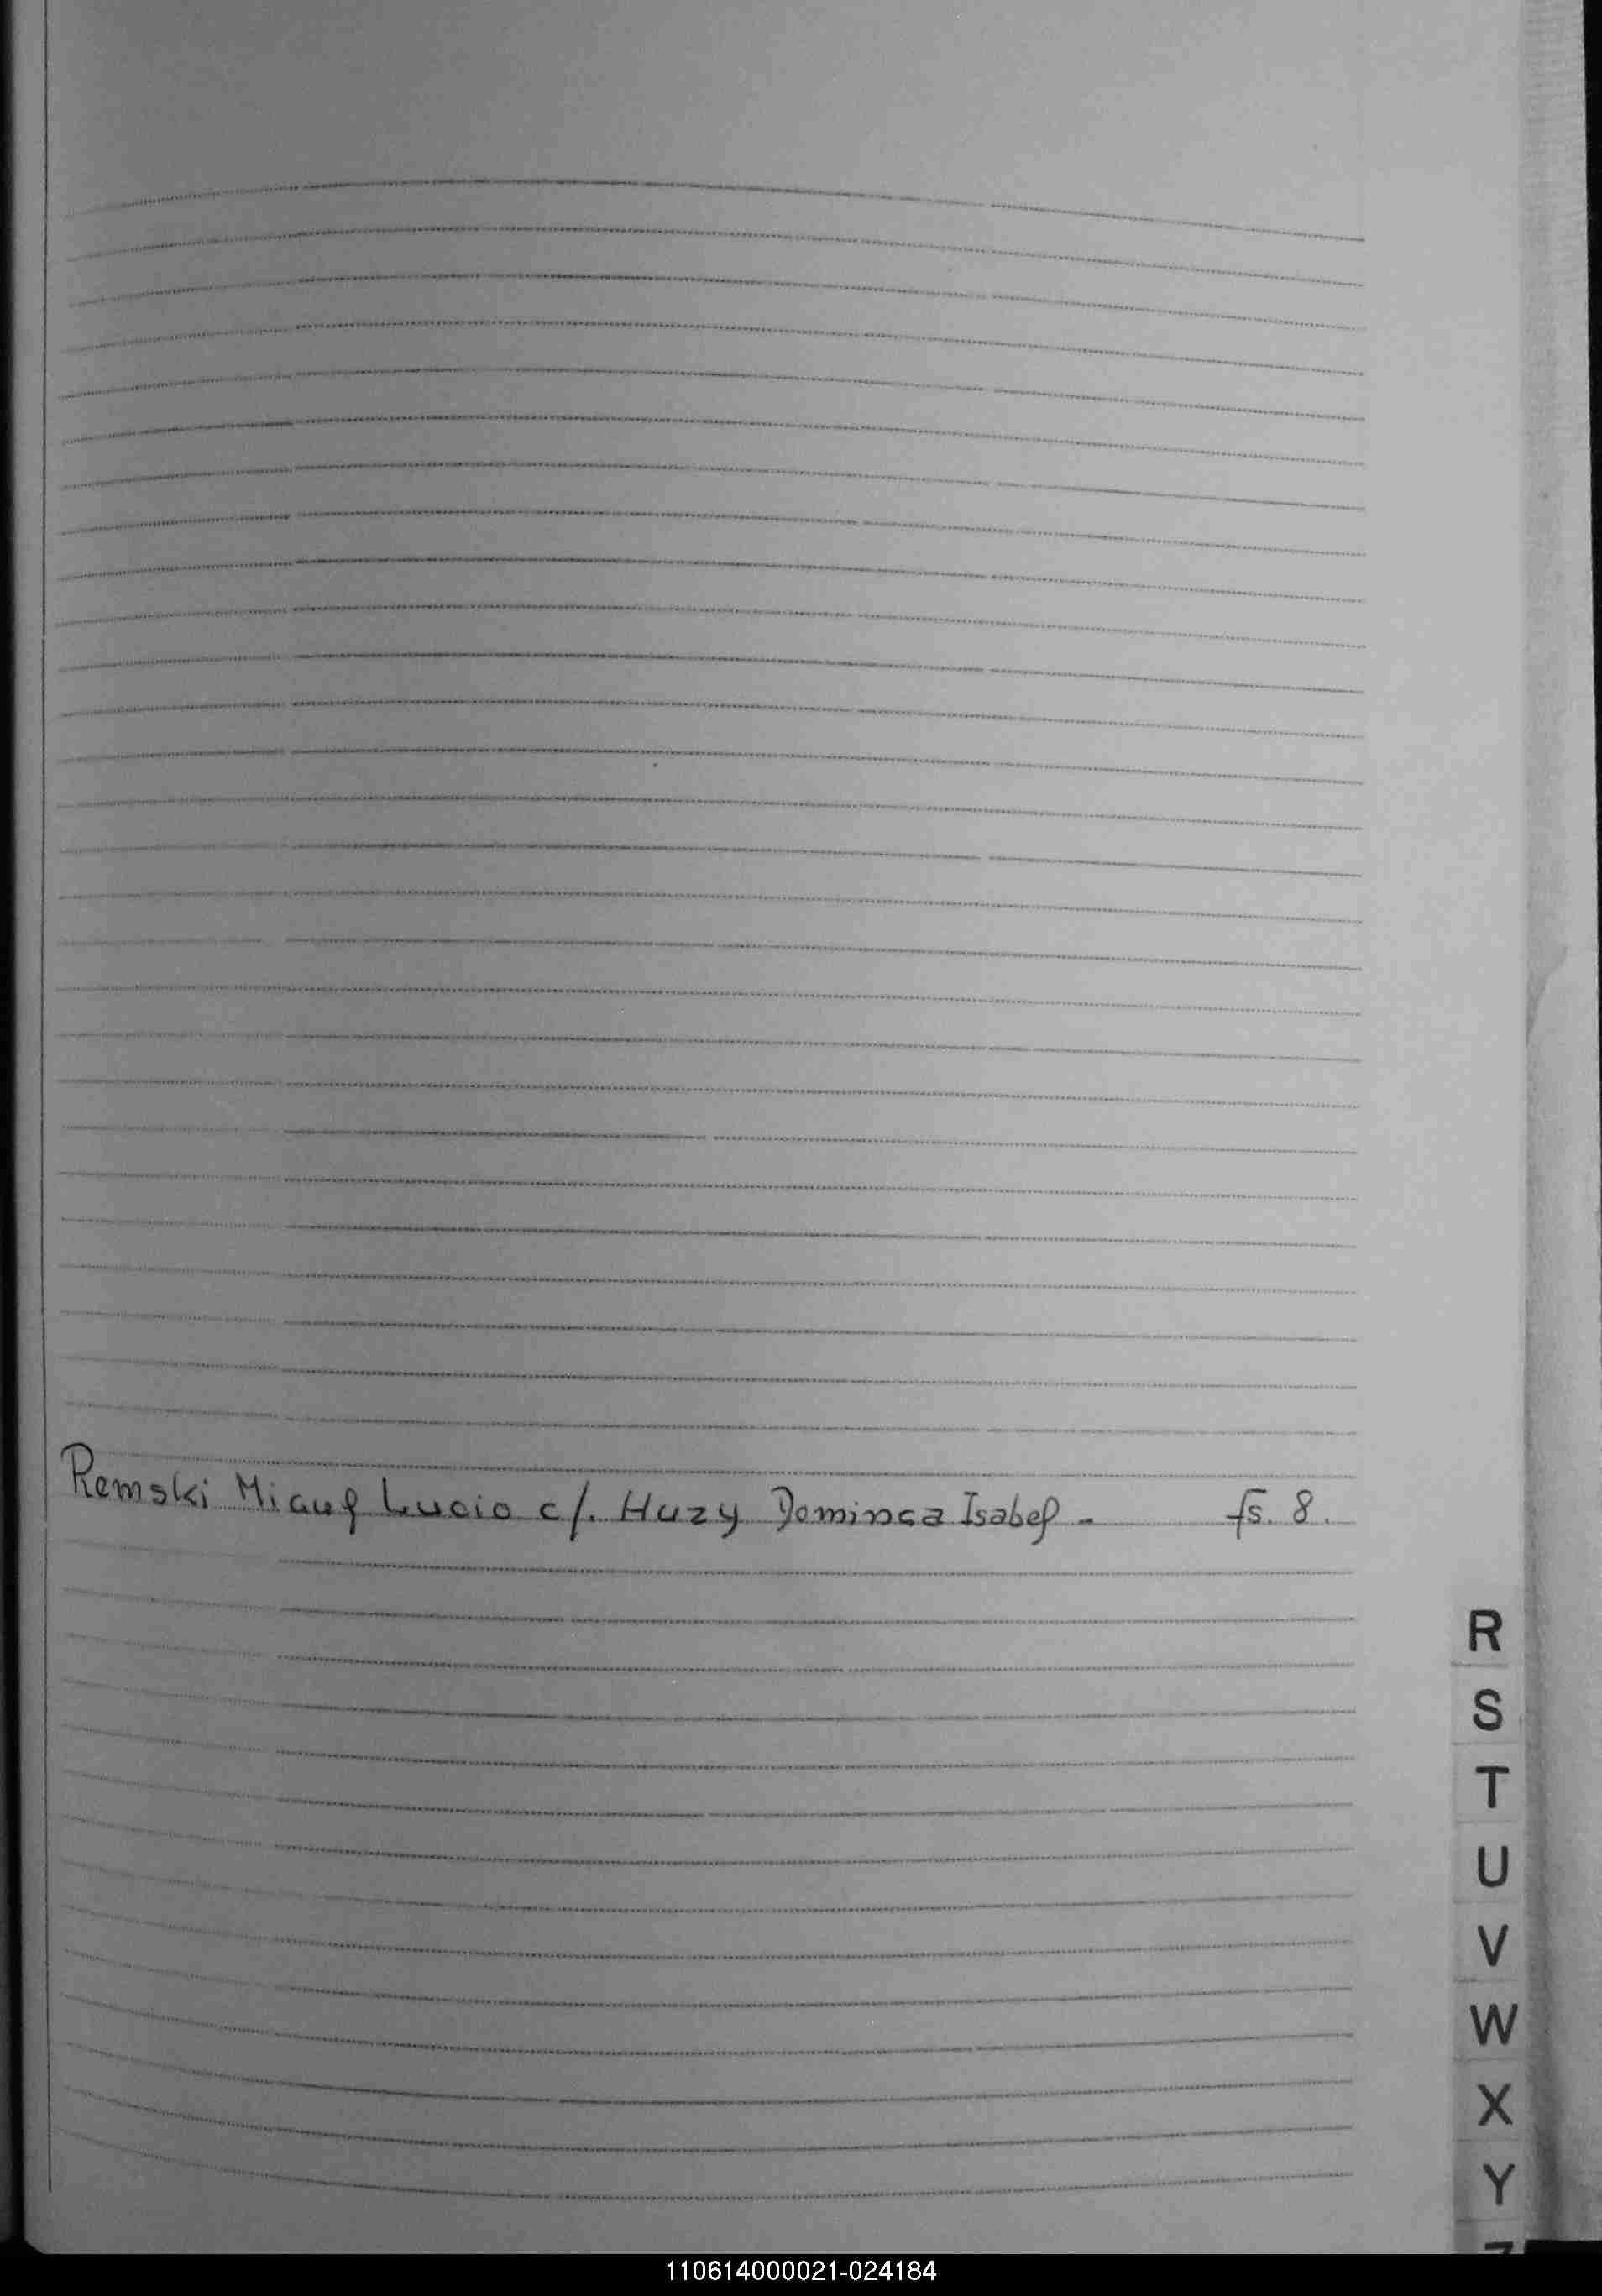 Remski Miguel Lucio c/. Huzy Dominga Isabel - fs. 8.
R
S
T
U
V
W
X
Y
Z
110614000021-024184